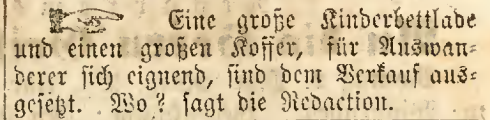 Eine große Kinderbettlade
und einen großen Koffer, für Auswan=
derer sich eignend, sind dem Verkauf aus=
gesetzt. Wo? sagt die Redaction.